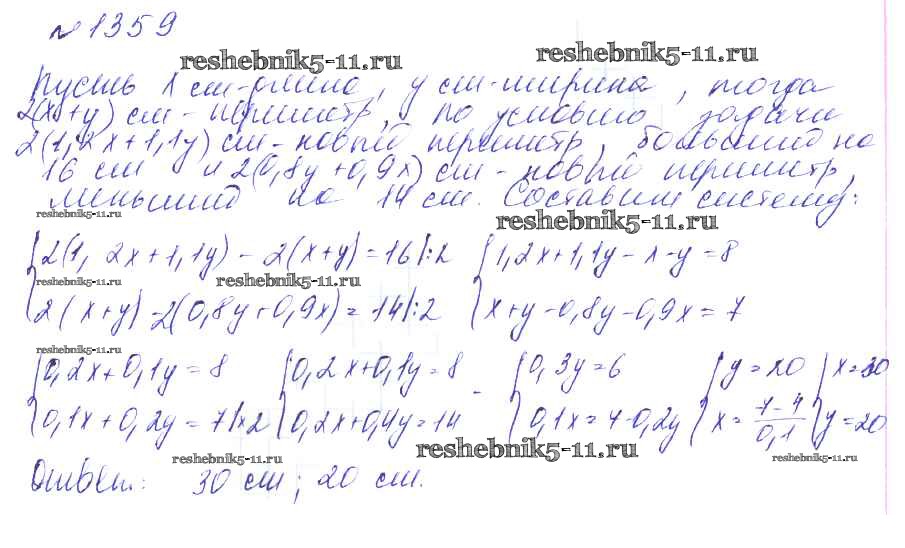 №1359
reshebnik5-11.ru reshebnik5-11.ru
Пусть x см-длина, y см-ширина, тогда
2(x+y) см - периметр, по условию задачи
2(1,2x+1,1y) см - новый периметр, больший на
16 см и 2(0,8y+0,9x) см - новый периметр,
меньший на 14 см. Составим систему:
reshebnik5-11.ru reshebnik5-11.ru
{2(1,2x+1,1y) - 2(x+y)=16|:2 {1,2x+1,1y-x-y=8
reshebnik5-11.ru reshebnik5-11.ru
{2(x+y)-2(0,8y+0,9x)=14|:2 {x+y-0,8y-0,9x=7
reshebnik5-11.ru
{0,2x+0,1y=8 {0,2x+0,1y=8 - {0,3y=6 {y=20 {x=30
{0,1x+0,2y=7|x2 {0,2x+0,4y=14 {0,1x=7-0,2y {x=7-4/0,1 {y=20
reshebnik5-11.ru reshebnik5-11.ru reshebnik5-11.ru
Ответ: 30 см; 20 см.